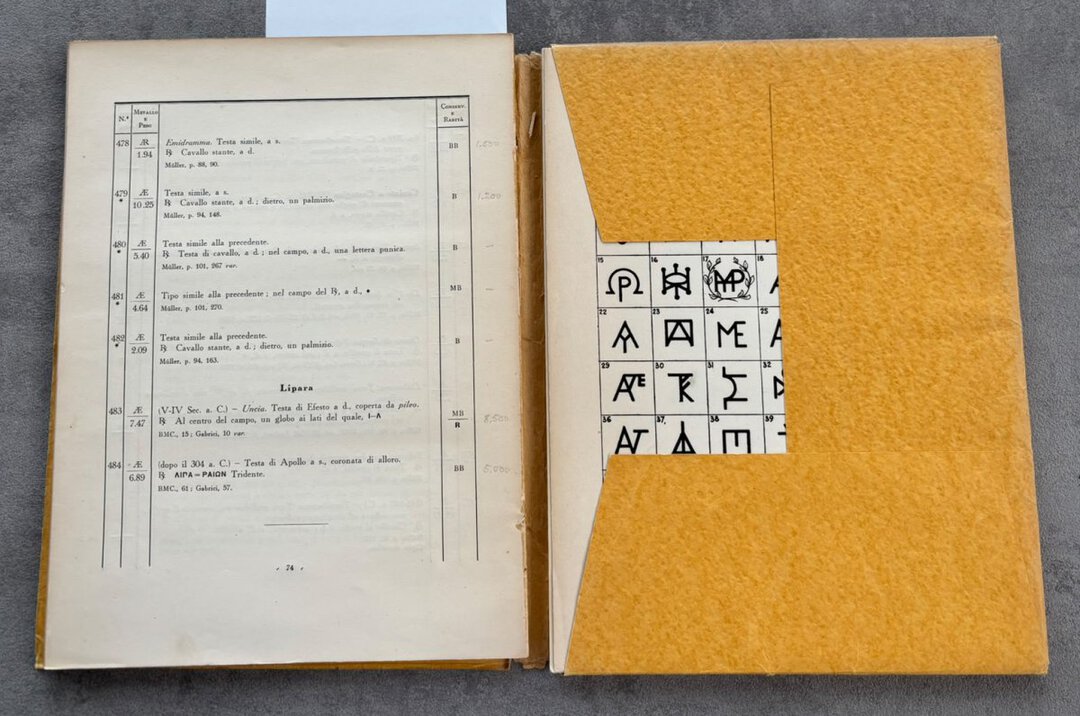 N.° METALLO E PESO CONSERV. E RARITÀ
478 Æ 1.94 Emidramma. Testa simile, a s. BB 1.650
℞ Cavallo stante, a d.
Müller, p. 88, 90.
479 * Æ 10.25 Testa simile, a s. B 1.200
℞ Cavallo stante, a d.; dietro, un palmizio.
Müller, p. 94, 148.
480 * Æ 5.40 Testa simile alla precedente. B –
℞ Testa di cavallo, a d.; nel campo, a d., una lettera punica.
Müller, p. 101, 267 var.
481 * Æ 4.64 Tipo simile alla precedente; nel campo del ℞, a d., • MB –
Müller, p. 101, 270.
482 * Æ 2.09 Testa simile alla precedente. B –
℞ Cavallo stante, a d.; dietro, un palmizio.
Müller, p. 94, 163.
Lipara
483 Æ 7.47 (V-IV Sec. a. C.) – Uncia. Testa di Efesto a d., coperta da pileo. MB R 8,500
℞ Al centro del campo, un globo ai lati del quale, I–Λ
BMC., 15; Gabrici, 10 var.
484 Æ 6.89 (dopo il 304 a. C.) – Testa di Apollo a s., coronata di alloro. BB 5,000
℞ ΛΙΓΑ – ΡΑΙΩΝ Tridente.
BMC., 61; Gabrici, 57.
74
15 16 17 18
22 23 24 25
ME
29 30 31 32
36 37. 38 39